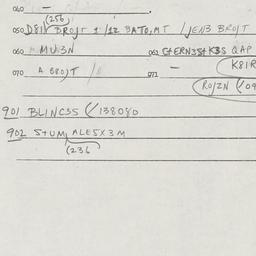 040 —
(256)
050 D81V BROJT 1/12 BATO,MT / JEN3 BROJT
060 MUZ3N 061 C+ERN3S+K3S QAP
(K81R
070 A BROJT 071 —
(ROJZN (/09
901 BLINC3S (/138080
902 S+UM, ALE5X3M
(236